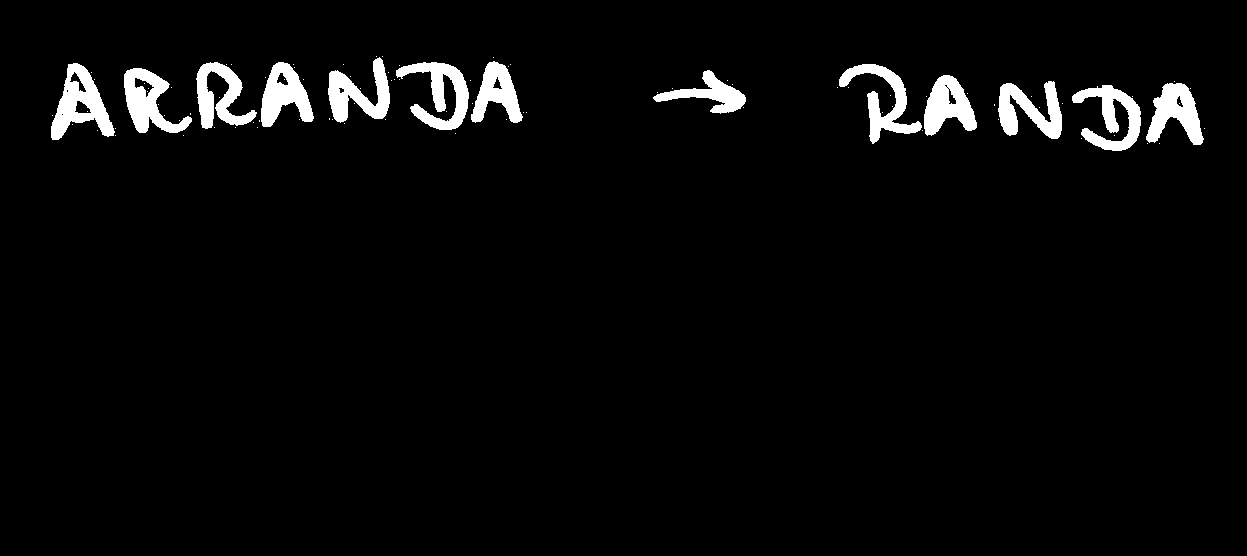 ARRANDA → RANDA